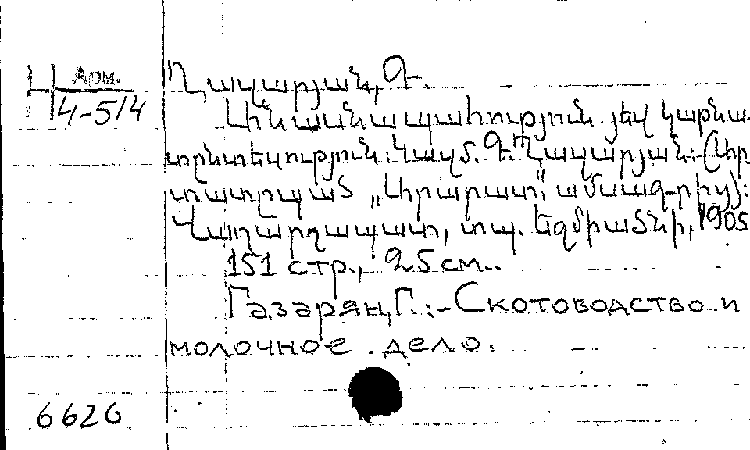 Арм.
4-514
Ղազարյան, Գ.
Անասնապահություն յեվ կաթնա-
տնտեսություն: Կազմ. Գ. Ղազարյան:
տատպած „Արարատ" ամսագրից:
Վաղարշապատ, տպ. Եջմիածնի, 1905
151 стр., 25 см.
Газарян, Г. :- Скотоводство и
молочное дело.
6626